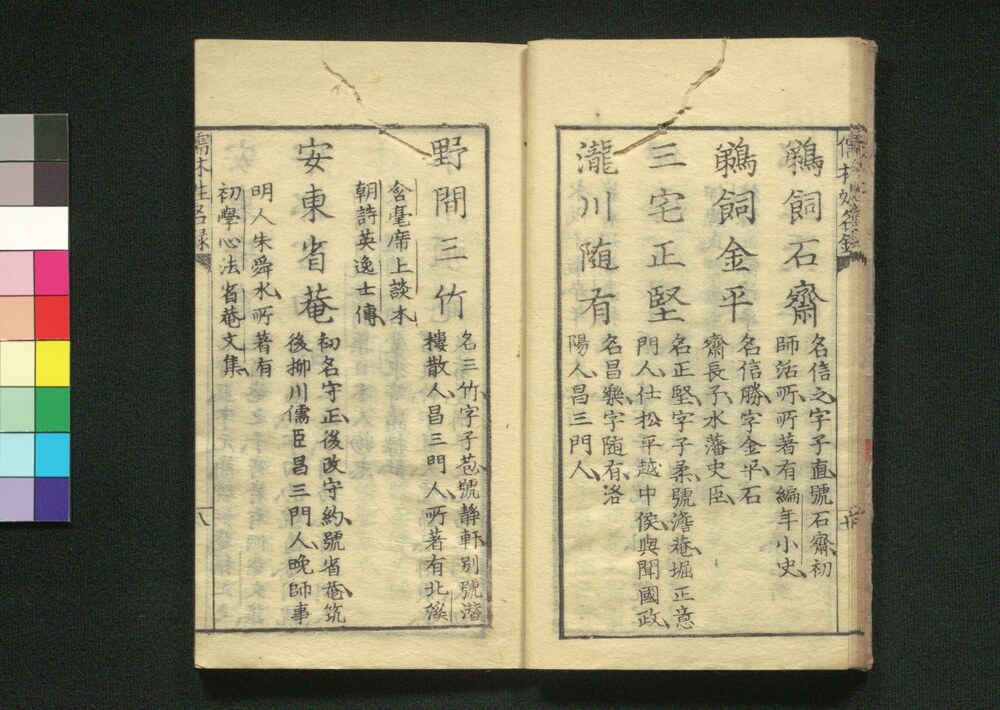 鵜飼石齋
名信之字子直號石齋初
師活所所著有編年小史
鵜飼金平
名信勝字金平石
齋長子水藩史臣
三宅正堅
名正堅字子柔號澹菴堀正意
門人仕松平越中侯與聞國政
瀧川随有
名昌樂字随有洛
陽人昌三門人
野間三竹
名三竹字子苞號静軒別號潜
樓散人昌三門人所著有北溪
含毫席上談本
朝詩英逸士傳
安東省菴
初名守正後改守約號省菴筑
後栁川儒臣昌三門人晩師事
明人朱舜水所著有
初學心法省菴文集
儒林姓名録
八